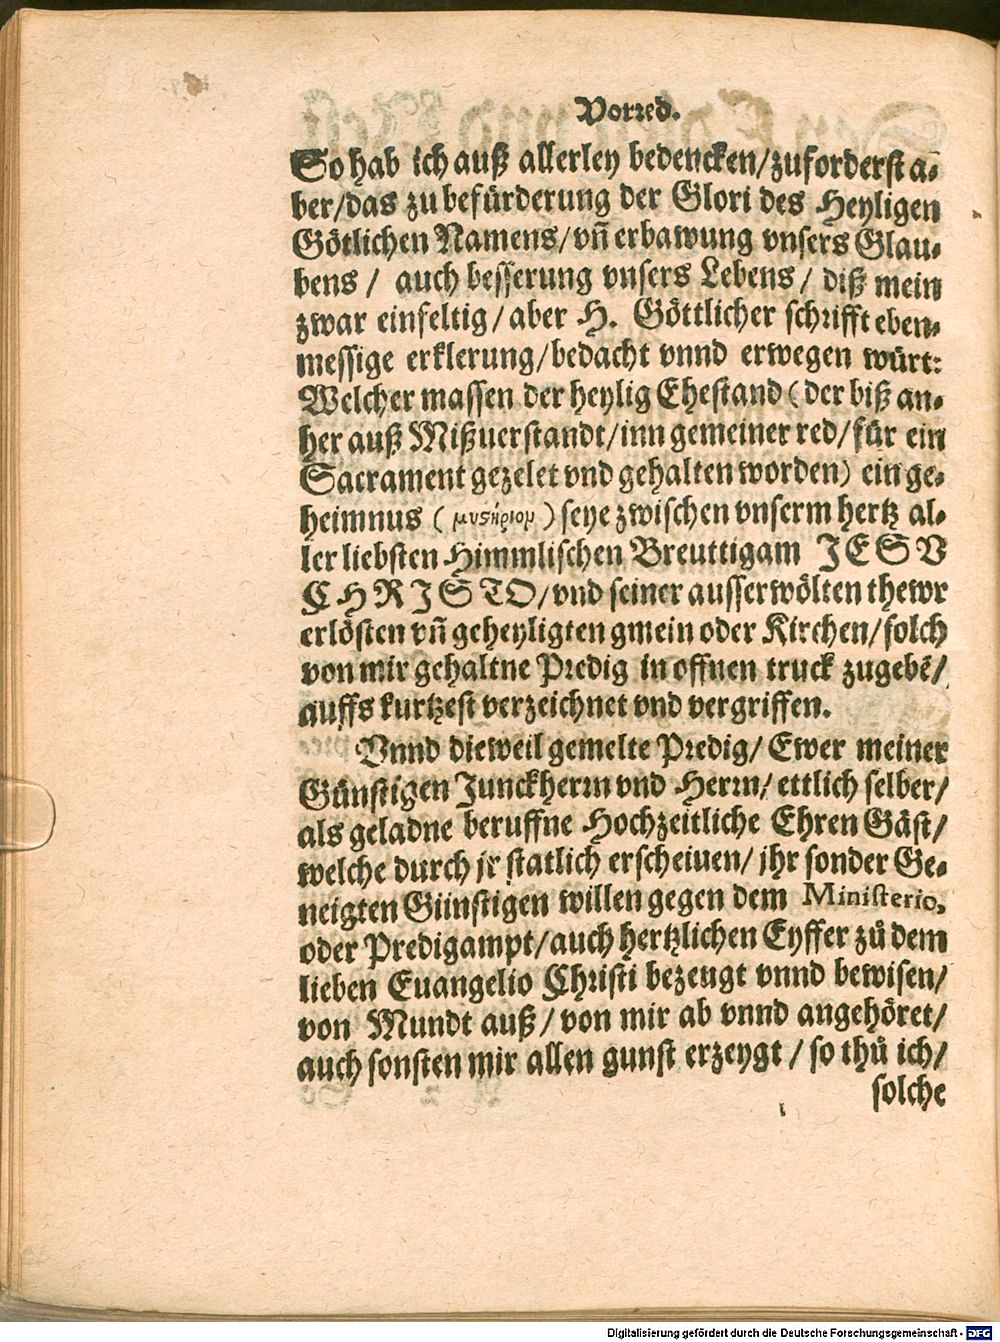 Vorred.
So hab ich auß allerley bedencken/zuforderst a⸗
ber/das zu befürderung der Glori des Heyligen
Götlichen Namens/vñ erbawung vnsers Glau⸗
bens / auch besserung vnsers Lebens / diß mein
zwar einfeltig/aber H. Göttlicher schrifft eben⸗
messige erklerung/bedacht vnnd erwegen würt:
Welcher massen der heylig Ehestand (der biß an⸗
her auß Mißuerstandt/inn gemeiner red/für ein
Sacrament gezelet vnd gehalten worden) ein ge⸗
heimnus ( μυστήριον ) seye zwischen vnserm hertz al⸗
ler liebsten Himmlischen Breuttigam JESV
CHRISTO/vnd seiner ausserwölten thewr
erlösten vñ geheyligten gmein oder Kirchen/solch
von mir gehaltne Predig in offnen truck zugebē/
auffs kurtzest verzeichnet vnd vergriffen.
Vnnd dieweil gemelte Predig/ Ewer meiner
Günstigen Junckherrn vnd Herrn/ ettlich selber/
als geladne beruffne Hochzeitliche Ehren Gäst/
welche durch jr statlich erscheiuen/ jhr sonder Ge⸗
neigten Giinstigen willen gegen dem Ministerio,
oder Predigampt/auch hertzlichen Eyffer zů dem
lieben Euangelio Christi bezeugt vnnd bewisen/
von Mundt auß/von mir ab vnnd angehöret/
auch sonsten mir allen gunst erzeygt / so thů ich/
solche
Digitalisierung gefördert durch die Deutsche Forschungsgemeinschaft - DFG